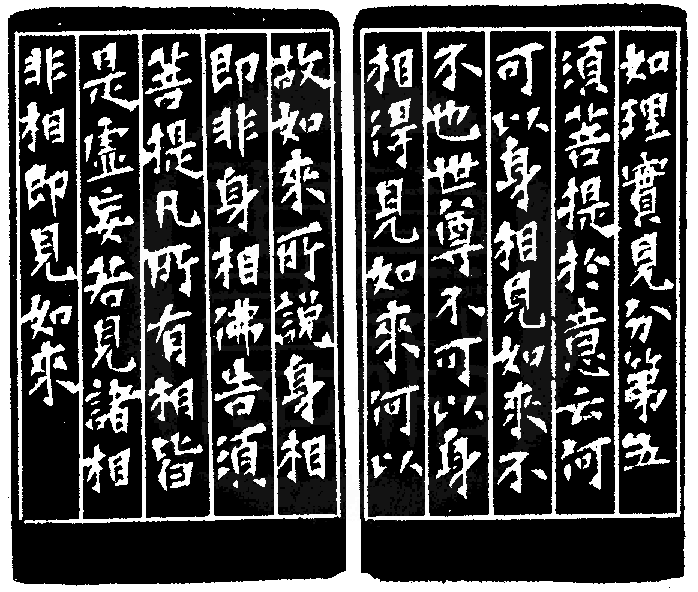 如理實見分第五
須菩提於意云何
可以身相見如來不
不也世尊不可以身
相得見如來何以
故如來所說身相
即非身相佛告須
菩提凡所有相皆
是虛妄若見諸相
非相即見如來